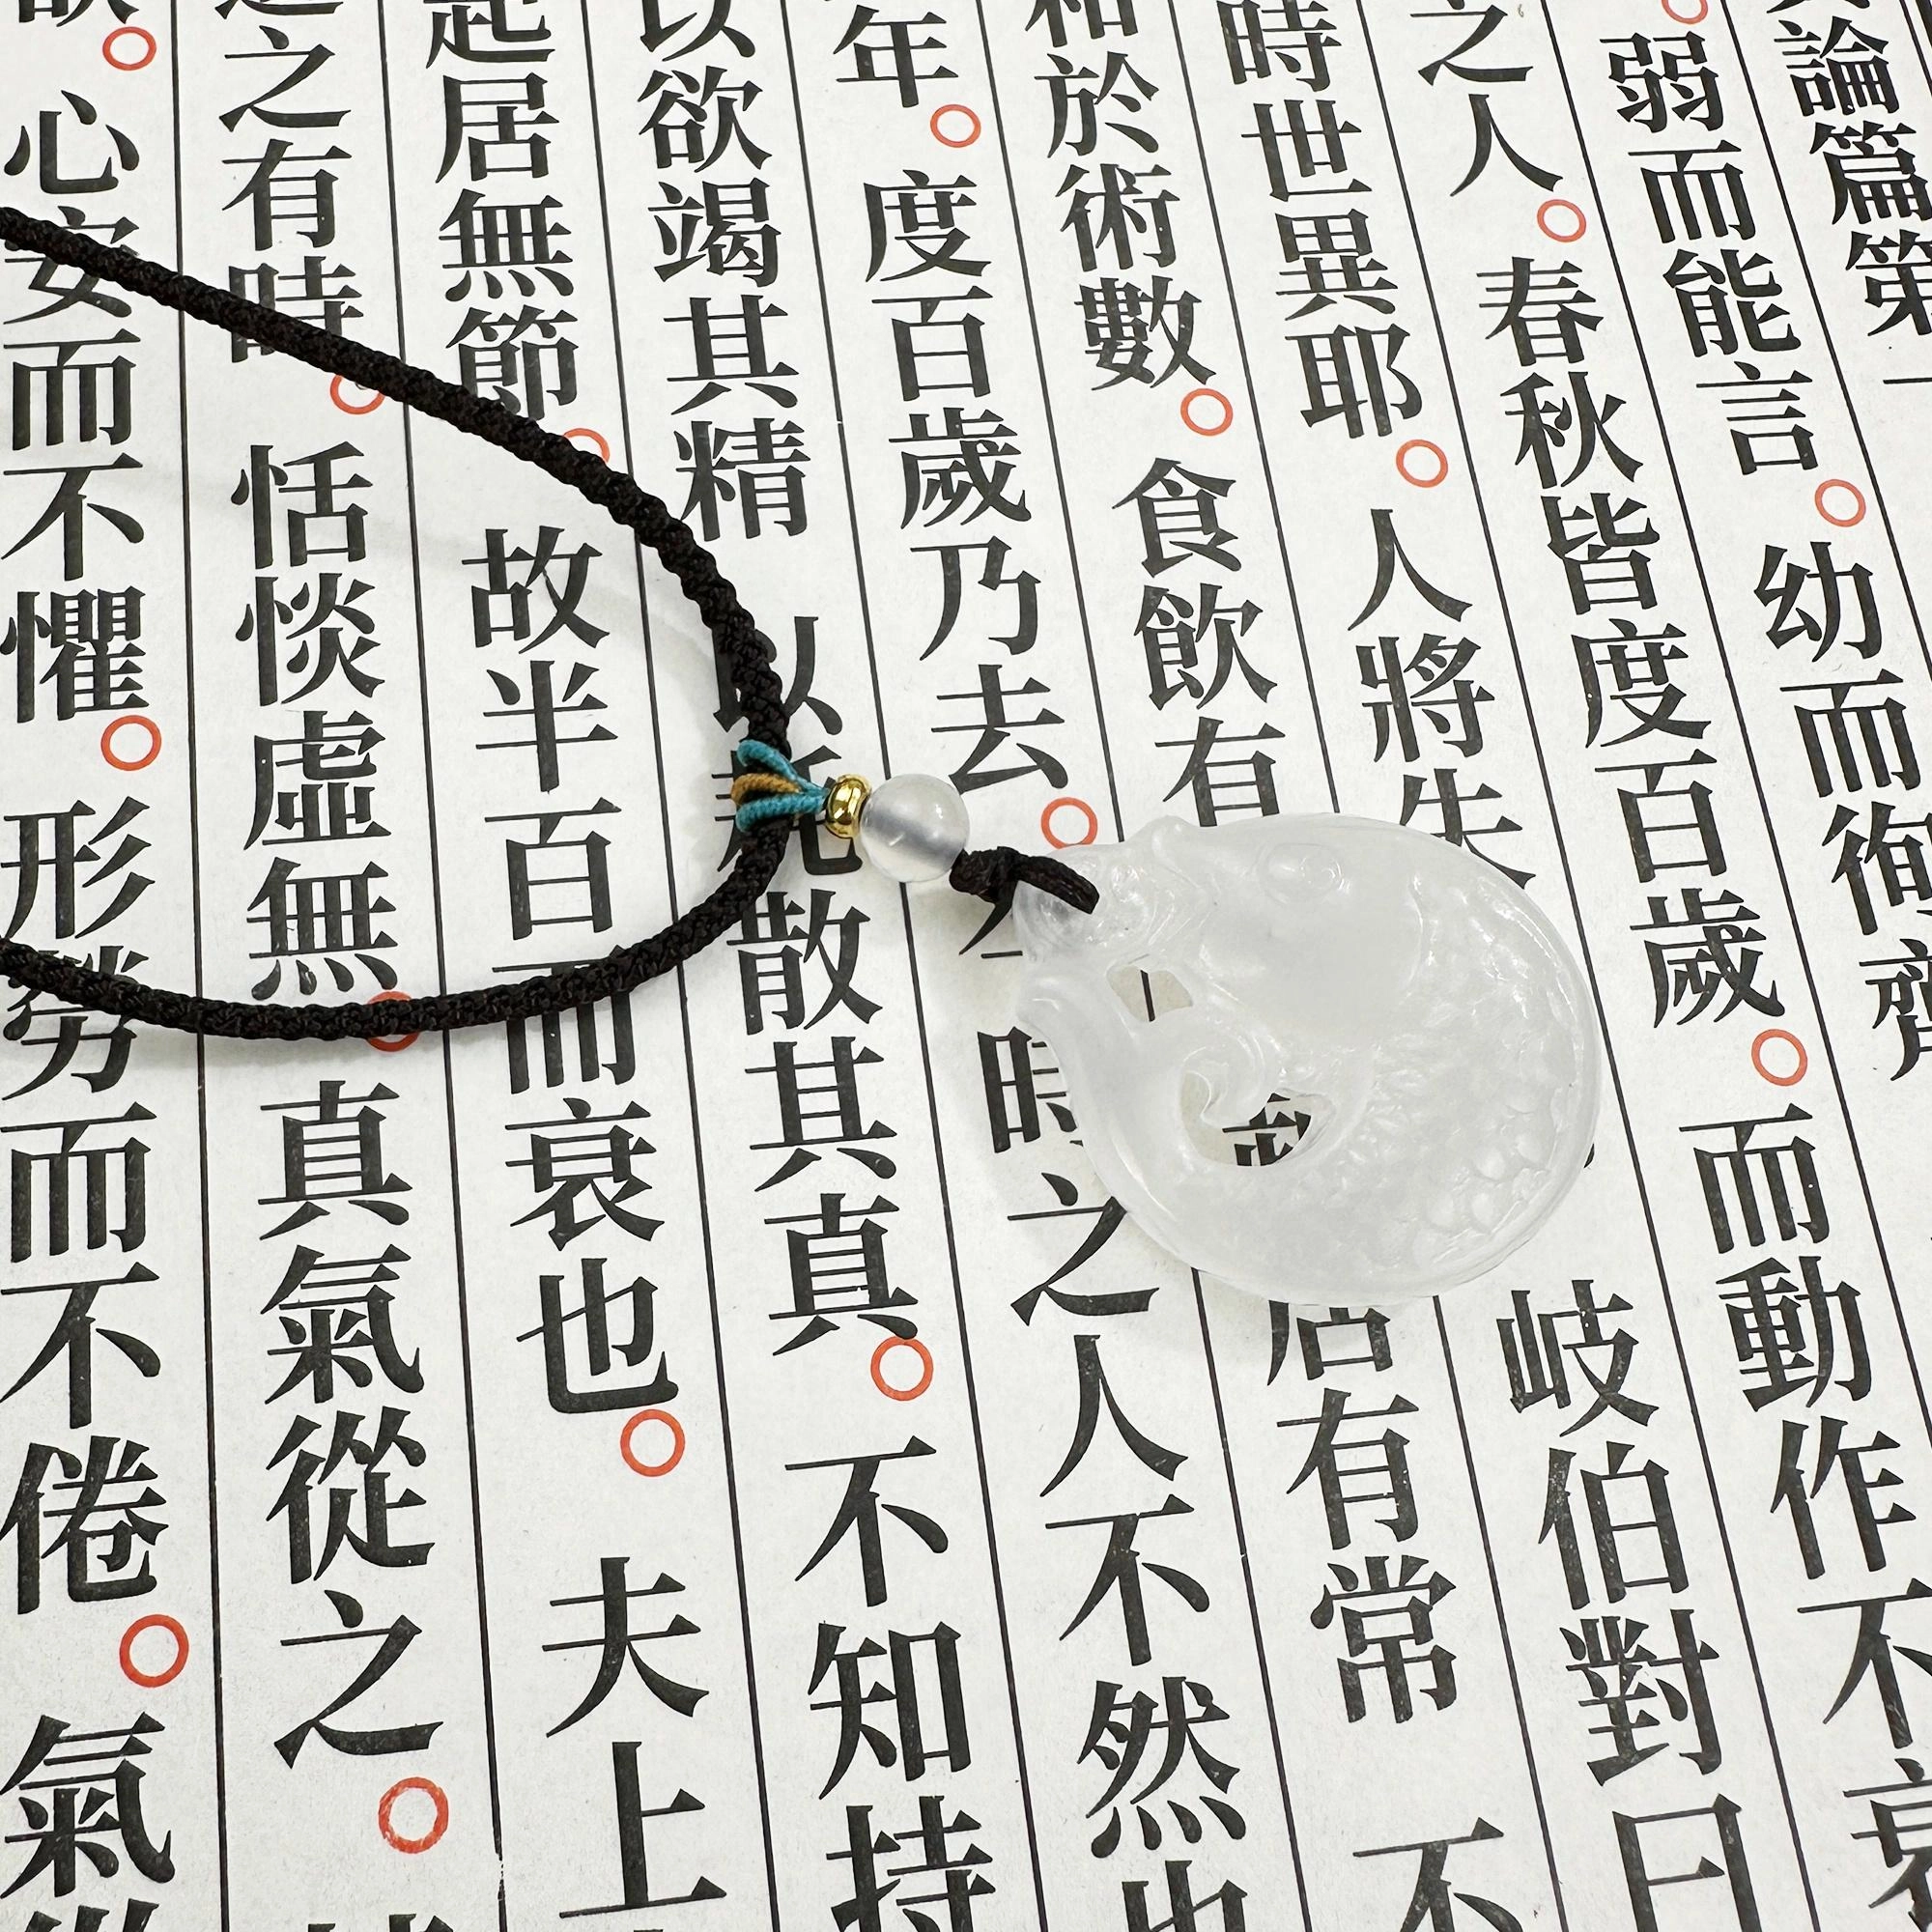 論篇第一
弱而能言。幼而徇齊
之人。春秋皆度百歲。而動作不衰
時世異耶。人將失 岐伯對曰
和於術數。食飲有 居有常 不
年。度百歲乃去。今時之人不然也
以欲竭其精 以耗散其真。不知持
起居無節。故半百而衰也。夫上
之有時。恬惔虛無。真氣從之。
欲。心安而不懼。形勞而不倦。氣從